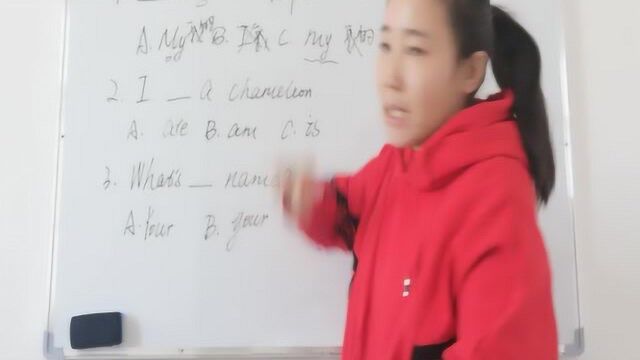 A. My 我的 B. I 我 C. my 我的
2. I __ a chameleon
A. are B. am C. is
3. What's __ name?
A. Your B. your